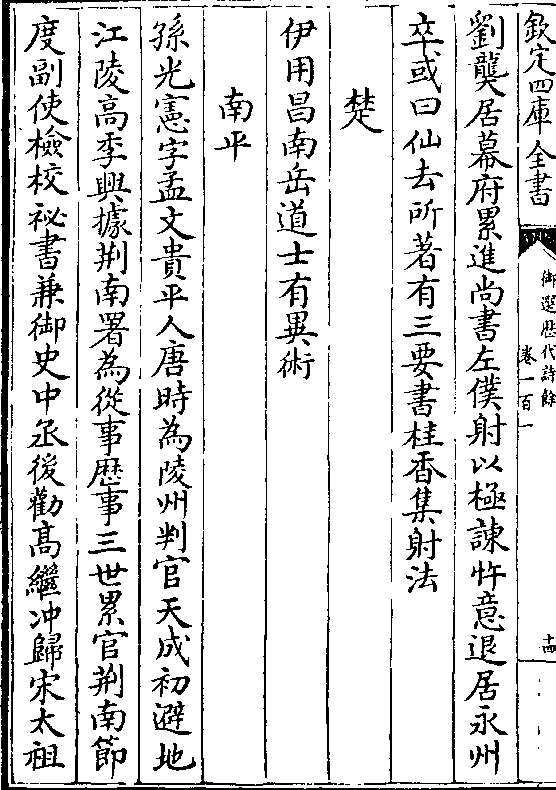 欽定四庫全書
御選歷代詩餘
卷一百一
十四
劉龑居幕府累進尚書左僕射以極諫忤意退居永州
卒或曰仙去所著有三要書桂香集射法
楚
伊用昌南岳道士有異術
南平
孫光憲字孟文貴平人唐時為陵州判官天成初避地
江陵高季興據荆南署為從事歴事三世累官荆南節
度副使檢校祕書兼御史中丞後勸高繼冲歸宋太祖